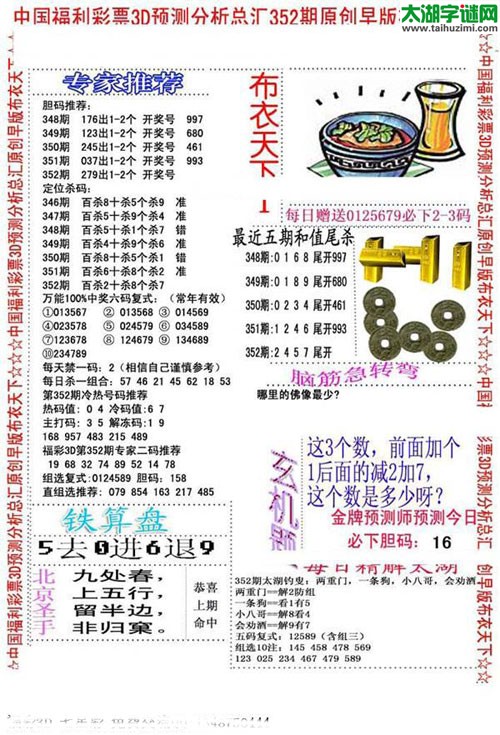 中国福利彩票3D预测分析总汇352期原创早版
太湖字谜网
www.taihuzimi.com
☆中国福利彩票3D预测分析总汇原创早版布衣天下☆☆☆中国福利彩票3D预测分析总汇原创早版布衣天下
专家推荐
胆码推荐：
348期 176出1-2个 开奖号 997
349期 123出1-2个 开奖号 680
350期 245出1-2个 开奖号 461
351期 037出1-2个 开奖号 993
352期 279出1-2个 开奖号
定位杀码：
346期 百杀8十杀5个杀9 准
347期 百杀0十杀5个杀4 准
348期 百杀5十杀1杀7 错
349期 百杀0十杀1杀7 错
350期 百杀1十杀8杀9 准
351期 百杀6十杀8杀2 准
352期 百杀2十杀8杀7
万能100%中奖六码复式：（常年有效）
①013567 ②013568 ③014569
④023578 ⑤024579 ⑥034589
⑦123678 ⑧124679 ⑨134689
⑩234789
每天禁一码：2（相信自己谨慎参考）
每日杀一组合：57 46 21 45 62 18 53
第352期冷热号码推荐
热码值：0 4 冷码值:6 7
主打码：3 5 解冻码:1 9
168 957 483 215 489
福彩3D第352期专家二码推荐
19 68 32 74 89 52 14 78
组选复式:0124589 胆码：158
直组选推荐：079 854 163 217 485
铁算盘
5去0进6退9
北京圣手
九处春，
上五行，
留半边，
非归窠。
恭喜
上期
命中
布衣天下
每日赠送0125679必下2-3码
最近五期和值尾杀
348期:0 1 6 8 尾开997
349期:0 1 8 9 尾开680
350期:0 2 3 4 尾开461
351期:1 2 4 6 尾开993
352期:2 4 5 7 尾开
脑筋急转弯
哪里的佛像最少？
玄机题
这3个数，前面加个
1后面的减2加7，
这个数是多少呀？
金牌预测师预测今日
必下胆码： 16
每日精解太湖
352期太湖钓叟：两重门，一条狗，小八哥，会劝酒
两重门==解2防组
一条狗==看1有5
小八哥==解8看4
会劝酒==解9有7
五码复式：12589（含组三）
组选10注：145 458 478 569
123 025 234 467 479 589